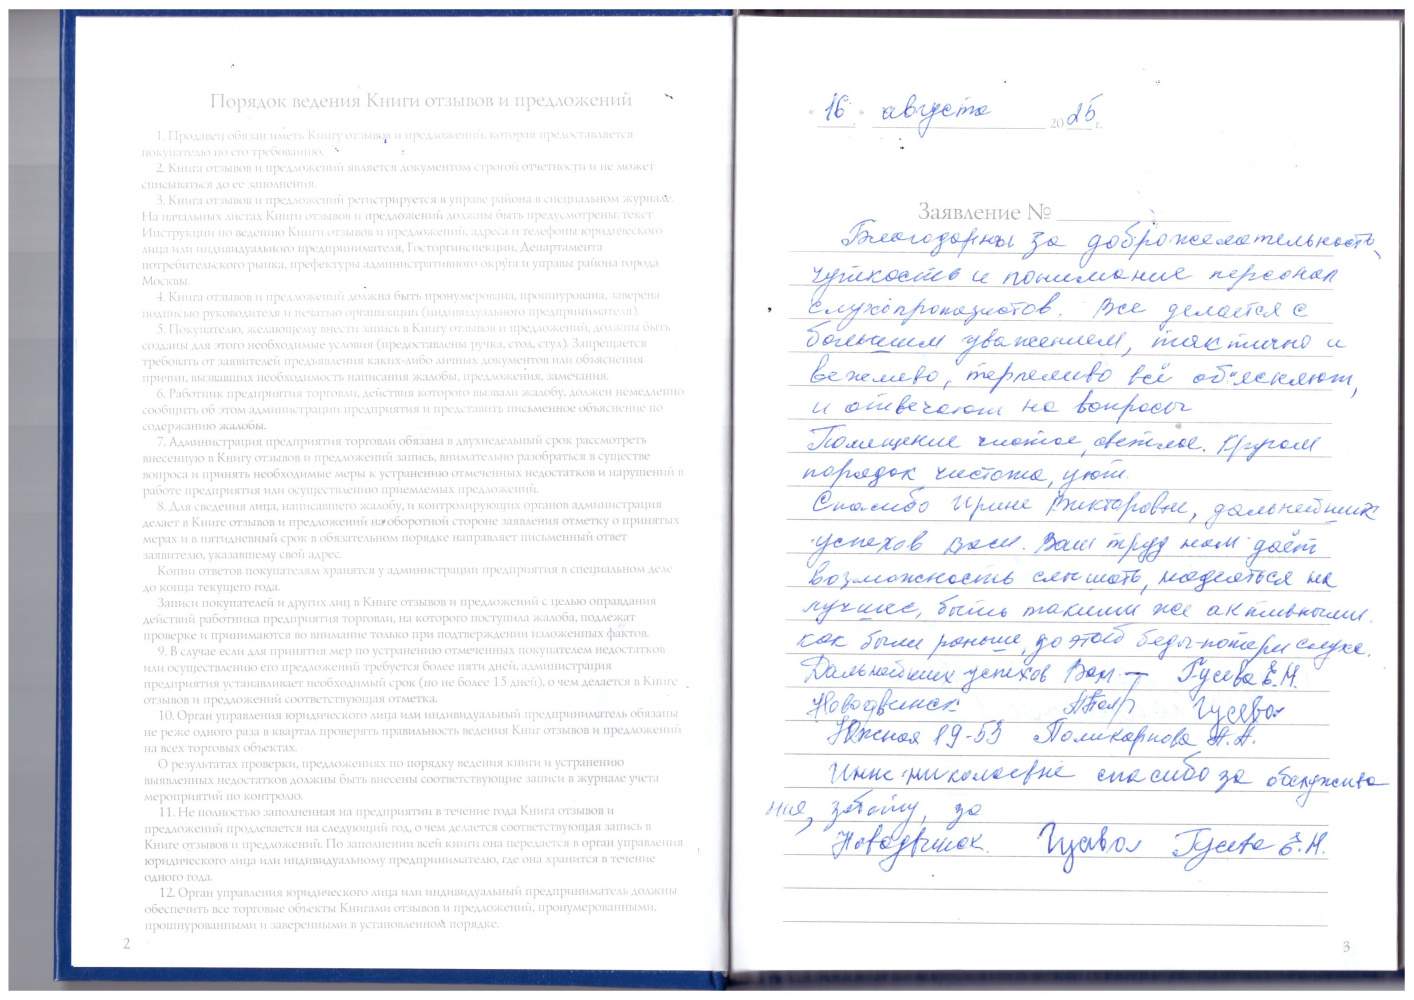 Порядок ведения Книги отзывов и предложений
1. Продавец обязан иметь Книгу отзывов и предложений, которая предоставляется
покупателю по его требованию.
2. Книга отзывов и предложений является документом строгой отчетности и не может
списываться до ее заполнения.
3. Книга отзывов и предложений регистрируется в управе района в специальном журнале.
На начальных листах Книги отзывов и предложений должны быть предусмотрены: текст
Инструкции по ведению Книги отзывов и предложений, адреса и телефоны юридического
лица или индивидуального предпринимателя, Госторгинспекции, Департамента
потребительского рынка, префектуры административного округа и управы района города
Москвы.
4. Книга отзывов и предложений должна быть пронумерована, прошнурована, заверена
подписью руководителя и печатью организации (индивидуального предпринимателя).
5. Покупателю, желающему внести запись в Книгу отзывов и предложений, должны быть
созданы для этого необходимые условия (предоставлены ручка, стол, стул). Запрещается
требовать от заявителей предъявления каких-либо личных документов или объяснения
причин, вызвавших необходимость написания жалобы, предложения, замечания.
6. Работник предприятия торговли, действия которого вызвали жалобу, должен немедленно
сообщить об этом администрации предприятия и представить письменное объяснение по
содержанию жалобы.
7. Администрация предприятия торговли обязана в двухнедельный срок рассмотреть
внесенную в Книгу отзывов и предложений запись, внимательно разобраться в существе
вопроса и принять необходимые меры к устранению отмеченных недостатков и нарушений в
работе предприятия или осуществлению приемлемых предложений.
8. Для сведения лица, написавшего жалобу, и контролирующих органов администрация
делает в Книге отзывов и предложений на оборотной стороне заявления отметку о принятых
мерах и в пятидневный срок в обязательном порядке направляет письменный ответ
заявителю, указавшему свой адрес.
Копии ответов покупателям хранятся у администрации предприятия в специальном деле
до конца текущего года.
Записи покупателей и других лиц в Книге отзывов и предложений с целью оправдания
действий работника предприятия торговли, на которого поступила жалоба, подлежат
проверке и принимаются во внимание только при подтверждении изложенных фактов.
9. В случае если для принятия мер по устранению отмеченных покупателем недостатков
или осуществлению его предложений требуется более пяти дней, администрация
предприятия устанавливает необходимый срок (но не более 15 дней), о чем делается в Книге
отзывов и предложений соответствующая отметка.
10. Орган управления юридического лица или индивидуальный предприниматель обязаны
не реже одного раза в квартал проверять правильность ведения Книг отзывов и предложений
на всех торговых объектах.
О результатах проверки, предложениях по порядку ведения книги и устранению
выявленных недостатков должны быть внесены соответствующие записи в журнале учета
мероприятий по контролю.
11. Не полностью заполненная на предприятии в течение года Книга отзывов и
предложений продлевается на следующий год, о чем делается соответствующая запись в
Книге отзывов и предложений. По заполнении всей книги она передается в орган управления
юридического лица или индивидуальному предпринимателю, где она хранится в течение
одного года.
12. Орган управления юридического лица или индивидуальный предприниматель должны
обеспечить все торговые объекты Книгами отзывов и предложений, пронумерованными,
прошнурованными и заверенными в установленном порядке.
2
"16" августа 2025 г.
Заявление №
Благодарны за доброжелательность,
чуткость и понимание персонал
слухопротезистов. Все делается с
большим уважением, тактично и
вежливо, терпеливо всё объясняют,
и отвечают на вопросы
Помещение чистое, светлое. Кругом
порядок чистота, уют.
Спасибо Ирине Викторовне, дальнейших
успехов Вам. Ваш труд нам даёт
возможность слышать, надеяться на
лучшее, быть такими же активными
как были раньше, до этой беды-потери слуха.
Дальнейших успехов Вам - Гусева Е.Н.
Новодвинск Гусева
Южная 19-53 Поликарпова А.А.
Инне Николаевне спасибо за обслужива
ния, заботу, за
Новодвинск. Гусева Гусева Е.Н.
3